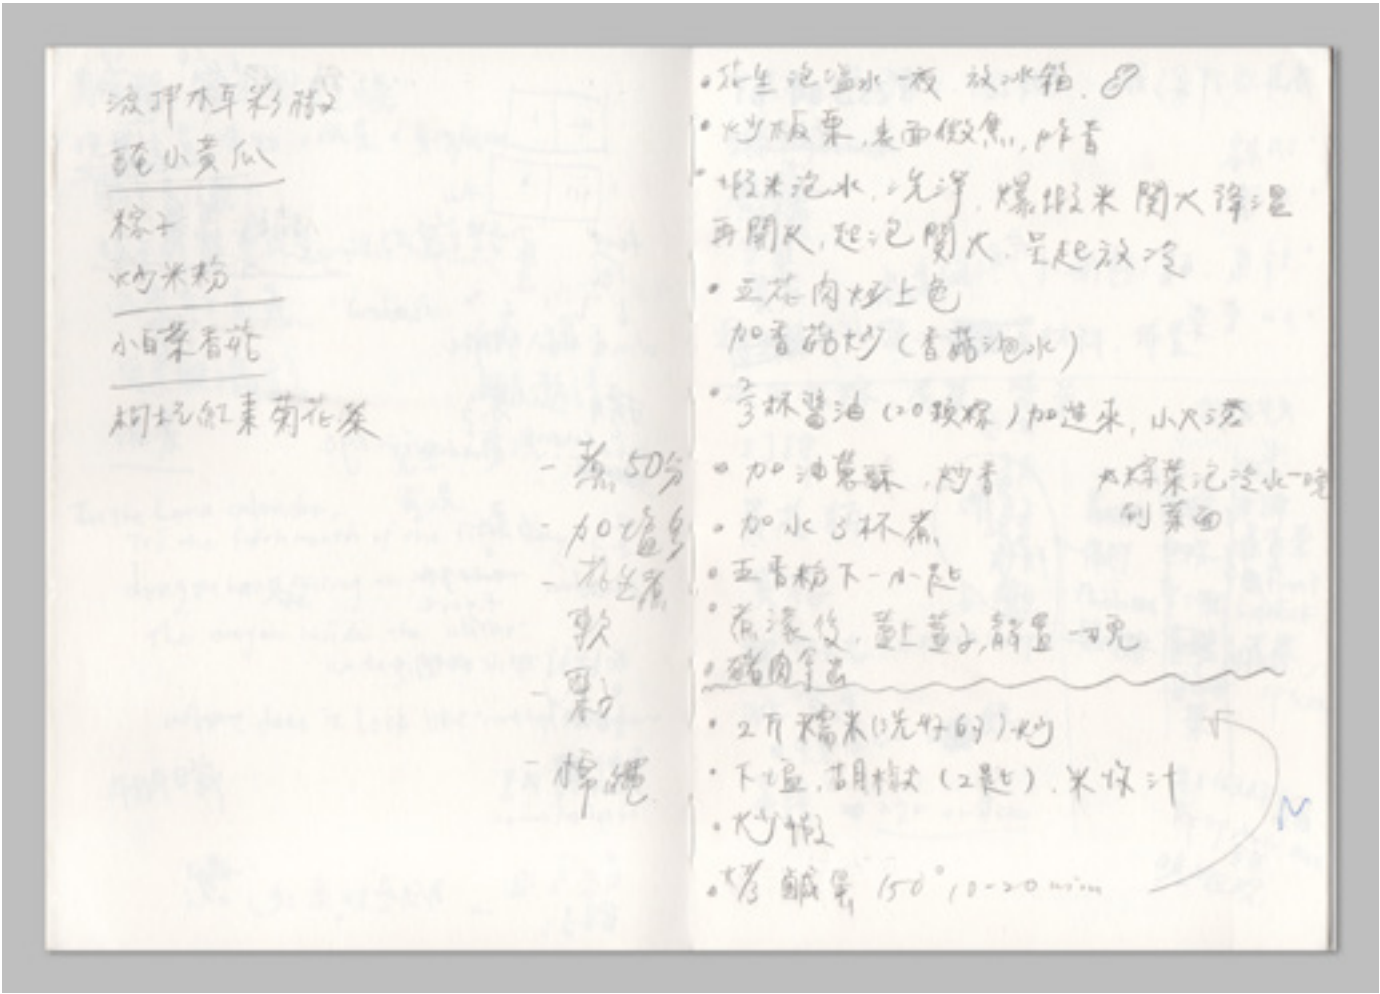 涼拌木耳彩椒
醃小黃瓜
粽子
炒米粉
小白菜香菇
枸杞紅棗菊花茶
- 煮50分
- 加鹽多
- 花生煮
軟
- 粽子
- 棉繩
• 花生泡溫水一夜 放冰箱.
• 炒板栗,表面微焦,炸香
• 蝦米泡水,洗淨,爆蝦米 關火降溫
再開火,起泡關火.呈起放冷
• 五花肉炒上色
加香菇炒(香菇泡水)
• 杯醬油(20顆粽)加進來,小火滾
• 加油蔥酥,炒香
粽葉泡冷水一晚
刷葉面
• 加水3杯煮
• 五香粉下一小匙
• 煮滾後,蓋上蓋子,靜置一晚
• 豬肉拿出
• 2斤糯米(洗好的)炒
• 下鹽,胡椒(2匙).米收汁
• 炒
• 烤鹹蛋 150° 10-20 min